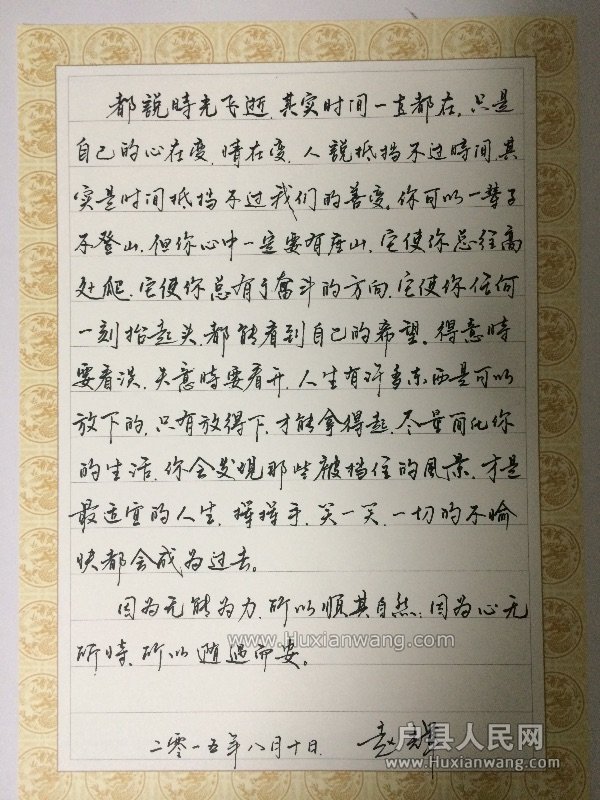 都説時光飞逝,其实时间一直都在,只是
自己的心在变,情在变,人説抵挡不过時间,其
实是时间抵挡不过我们的善变。你可以一辈子
不登山,但你心中一定要有座山,它使你总往高
处爬,它使你总有个奋斗的方向,它使你任何
一刻抬起头,都能看到自己的希望。得意時
要看淡,失意時要看开,人生有许多东西是可以
放下的,只有放得下,才能拿得起,尽量简化你
的生活,你会发現那些被挡住的風景,才是
最适宜的人生,挥挥手,笑一笑,一切的不愉
快都会成为过去。
因为无能为力,所以顺其自然,因为心无
所恃,所以随遇而安。
www.Huxianwang.com
二零一五年八月十日 赵
户县人民网
www.Huxianwang.com